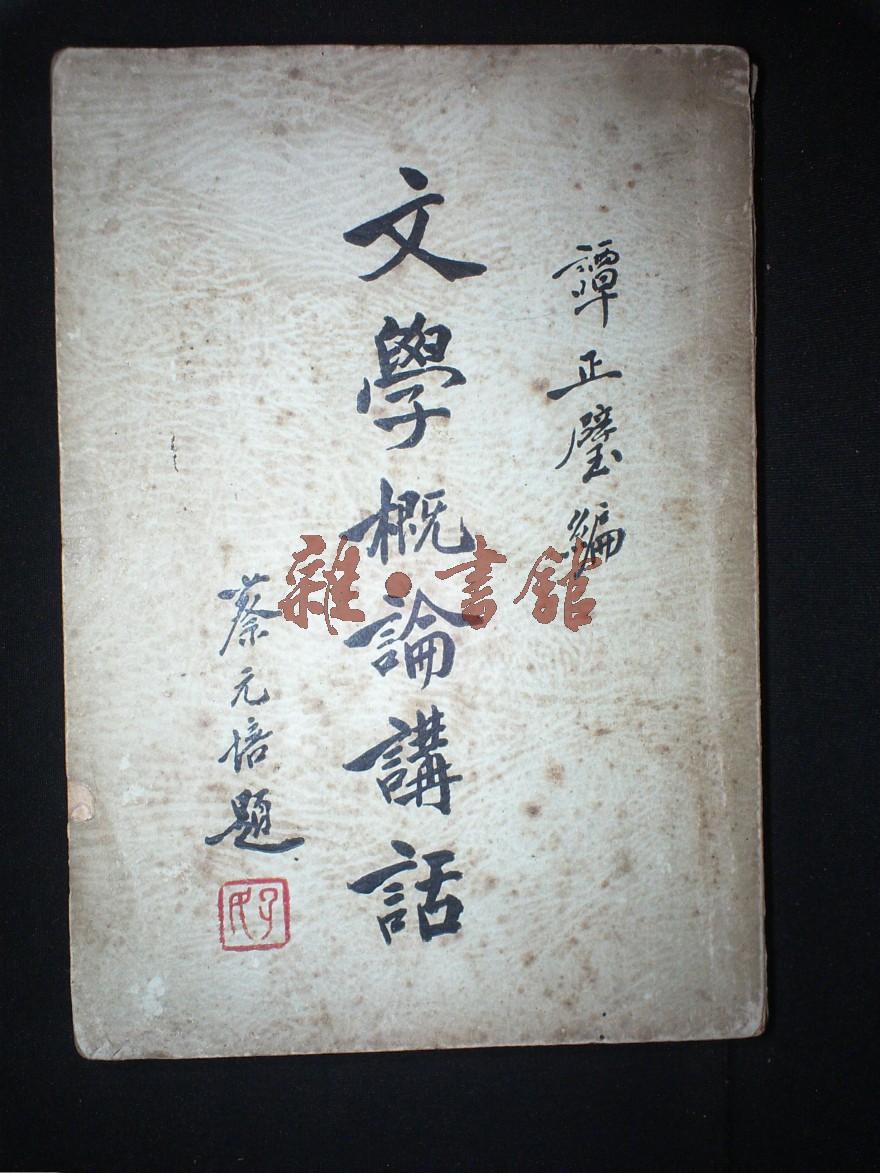 譚正璧編
文學概論講話
蔡元培題
孑民
雜·書館